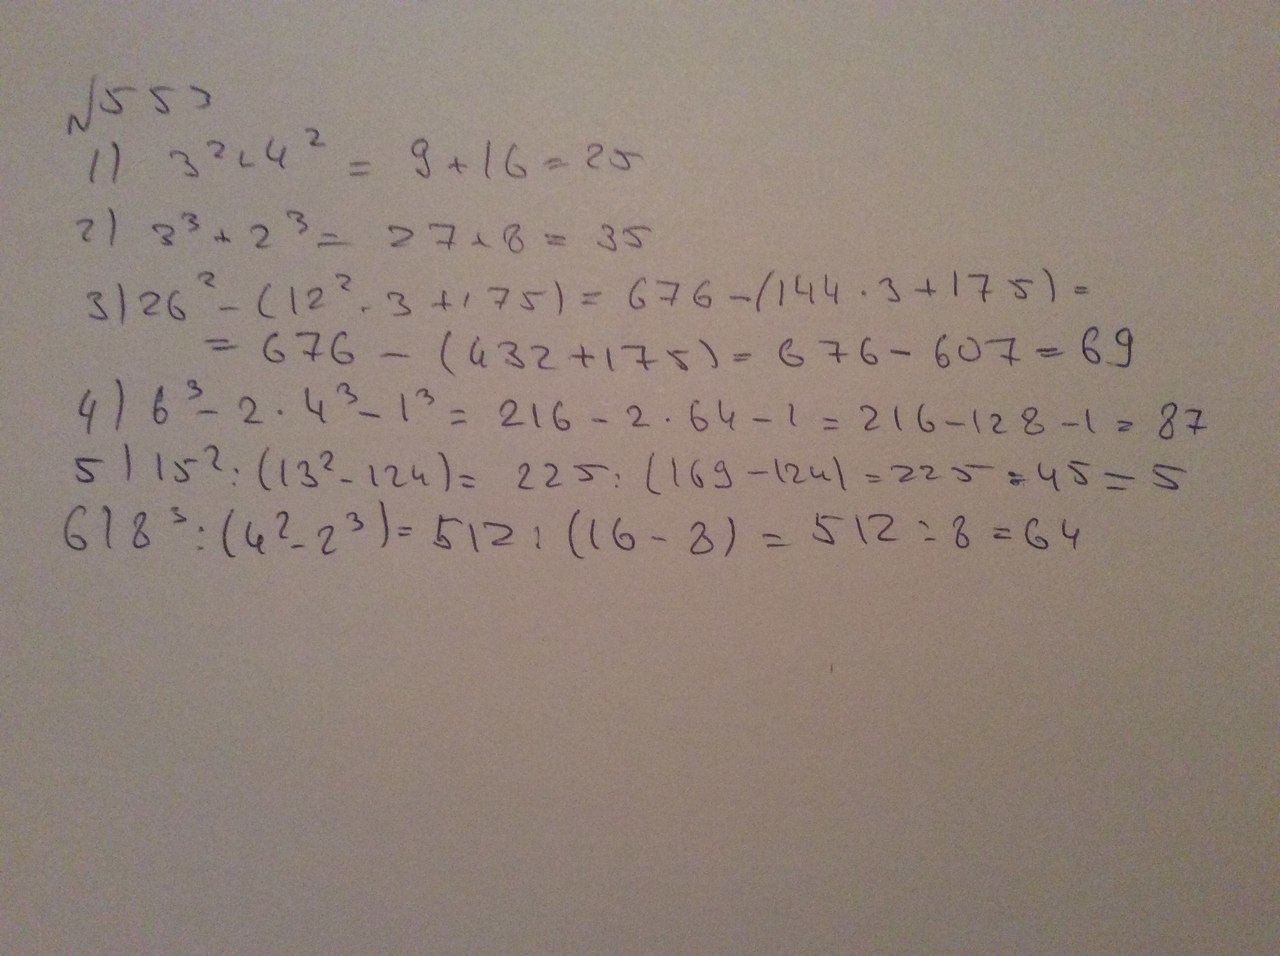 №553
1) 3² + 4² = 9 + 16 = 25
2) 3³ + 2³ = 27 + 8 = 35
3) 26² - (12² · 3 + 175) = 676 - (144 · 3 + 175) =
= 676 - (432 + 175) = 676 - 607 = 69
4) 6³ - 2 · 4³ - 1³ = 216 - 2 · 64 - 1 = 216 - 128 - 1 = 87
5) 15² : (13² - 124) = 225 : (169 - 124) = 225 : 45 = 5
6) 8³ : (4² - 2³) = 512 : (16 - 8) = 512 : 8 = 64